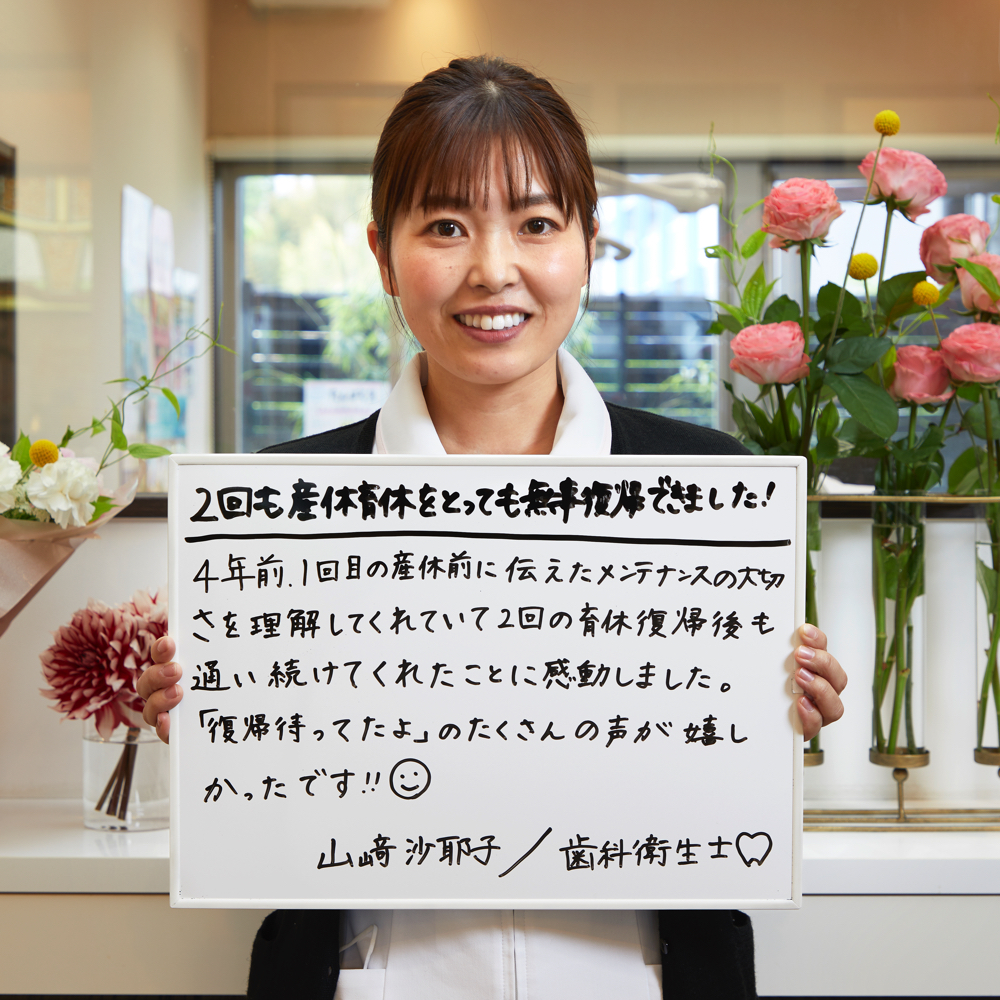 2回も産休育休をとっても無事復帰できました!
4年前、1回目の産休前に伝えたメンテナンスの大切
さを理解してくれていて2回の育休復帰後も
通い続けてくれたことに感動しました。
「復帰待ってたよ」のたくさんの声が嬉し
かったです!!
山﨑沙耶子/歯科衛生士